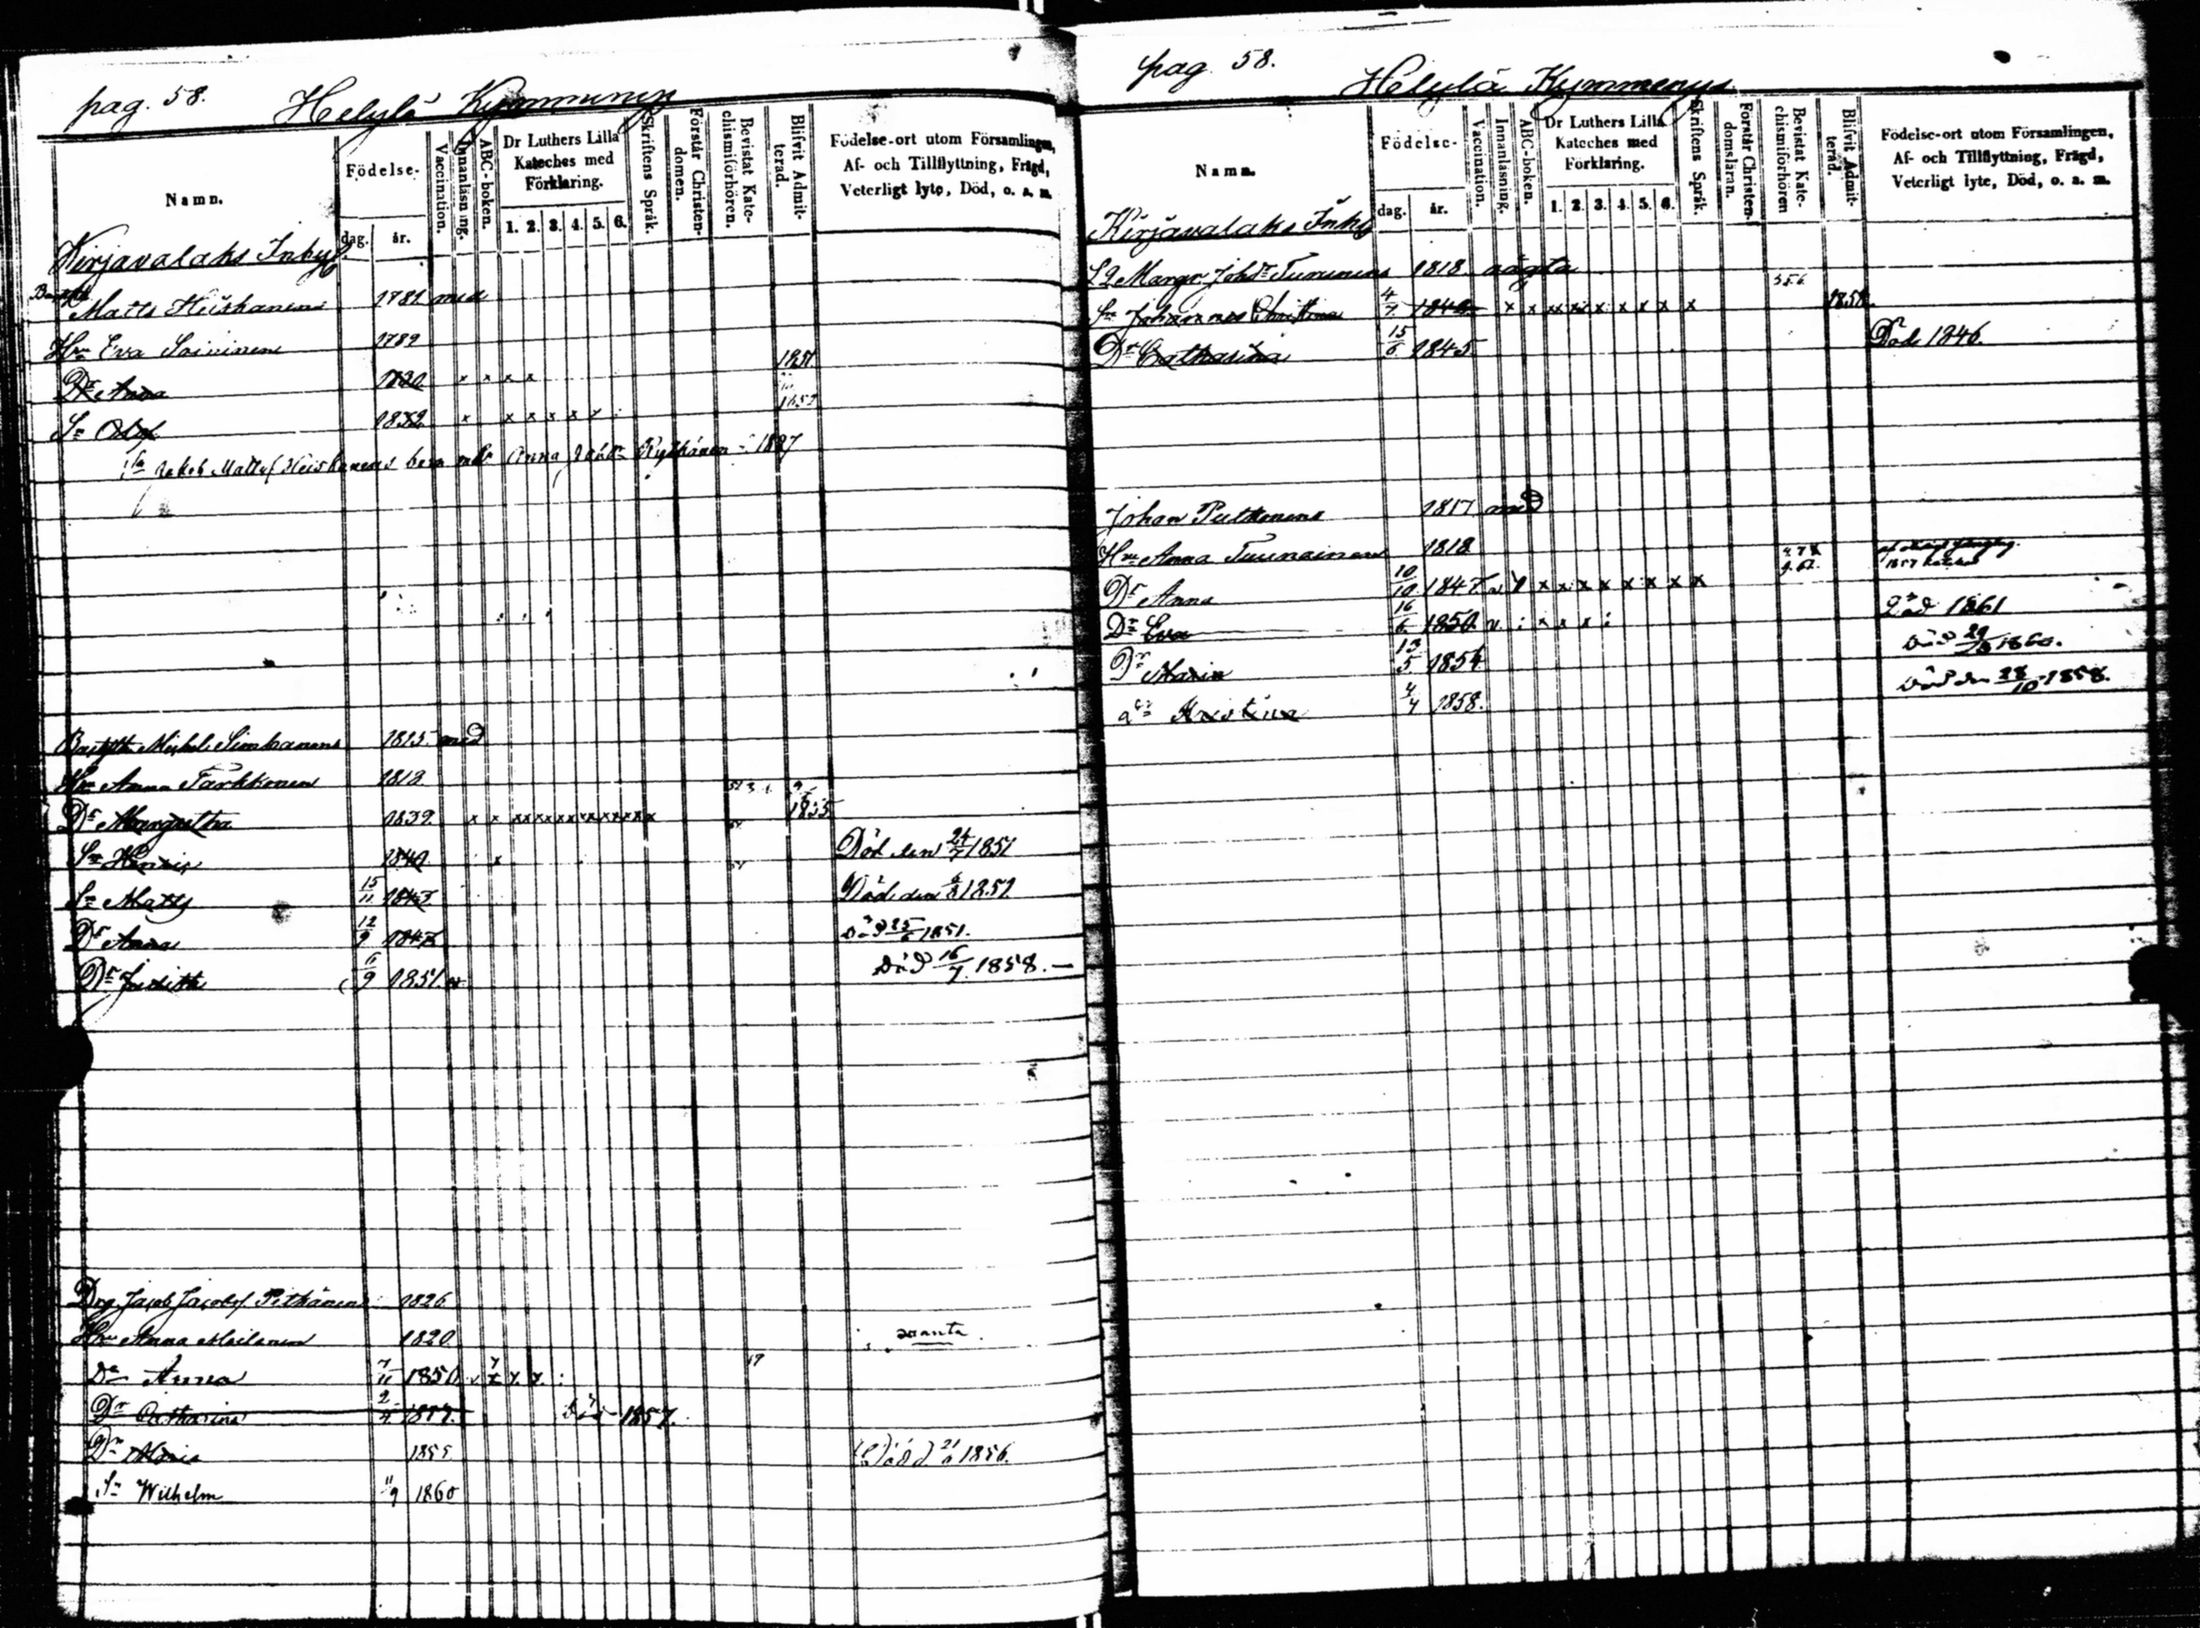 pag. 58.
Helylä Kymmenys
Namn.
Födelse-
dag.
år.
Vaccination.
Innanläsning.
ABC-boken.
Dr Luthers Lilla
Kateches med
Förklaring.
1. 2. 3. 4. 5. 6.
Skriftens Språk.
Förstår Christen-
domen.
Bevistat Kate-
chismiförhören.
Blifvit Admit-
terad.
Födelse-ort utom Församlingen,
Af- och Tillflyttning, Frägd,
Veterligt lyte, Död, o. a. m.
Kirjavalaks Inhys
Matts Heiskanens 1781 med
Hu Eva Soininen 1789
Dr Anna 1830 x x x x 1851
Sn Olof 1832 x x x x x
Jakob Mattsf Heiskanens Anna 1827
Michel Simkanens 1815 med
Hu Anna Tarkkonen 1818
Dr Margretha 1839 x x x x x x x x x x x x x 1855
Sn Henric 1840 x Död den 24/7 1851
Sn Matts 15/11 1843 Död den 6/8 1851
Dr Anna 12/9 1847 Död 25/6 1851.
Dr Judith 6/9 1851 Död 16/7 1858.
Drg Jacob Jacobsf Pitkänens 1826
Hu Anna Moilanen 1820
Dr Anna 7/11 1850
Dr Catharina 2/4 1857. Död 1857.
Dr Maria 1855 Död d. 21/6 1856.
Sn Wilhelm 11/9 1860
pag. 58.
Helylä Kymmenys
Namn.
Födelse-
dag.
år.
Vaccination.
Innanläsning.
ABC-boken.
Dr Luthers Lilla
Kateches med
Förklaring.
1. 2. 3. 4. 5. 6.
Skriftens Språk.
Förstår Christen-
domsläran.
Bevistat Kate-
chismiförhören
Blifvit Admit-
terad.
Födelse-ort utom Församlingen,
Af- och Tillflyttning, Frägd,
Veterligt lyte, Död, o. a. m.
Kirjavalaks Inhy
Margr. Johdr Turunens 1818 oägta
Johannes Christina 4/7 1840 x x x x x x x x x x 1858
Dr Catharina 15/6 1845 Död 1846.
Johan Putkonens 1817 med
Hu Anna Tuunainen 1818
Dr Anna 10/10 1847 x x x x x x x x
Dr Eva 16/6 1850 v. x x x Död 1861
Dr Maria 13/5 1854 Död 1860.
Kristina 4/4 1858. Död den 28/10 1858.